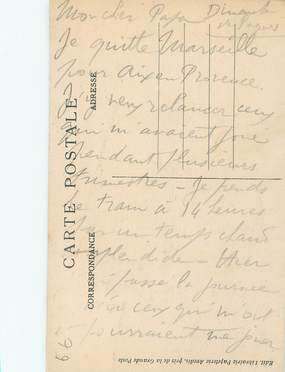 Mon cher Papa Dimanche
de Pâques
Je quitte Marseille
pour Aix en Provence.
j'y veux relancer ceux
qui m'avaient joué
pendant plusieurs
trimestres - Je prends
le train à 14 heures
par un temps chaud
splendide - Hier
passé la journée
avec ceux qui m'ont
pourraient me jouer
CARTE POSTALE
CORRESPONDANCE
ADRESSE
Edit. Librairie Papeterie près de la Grande Poste